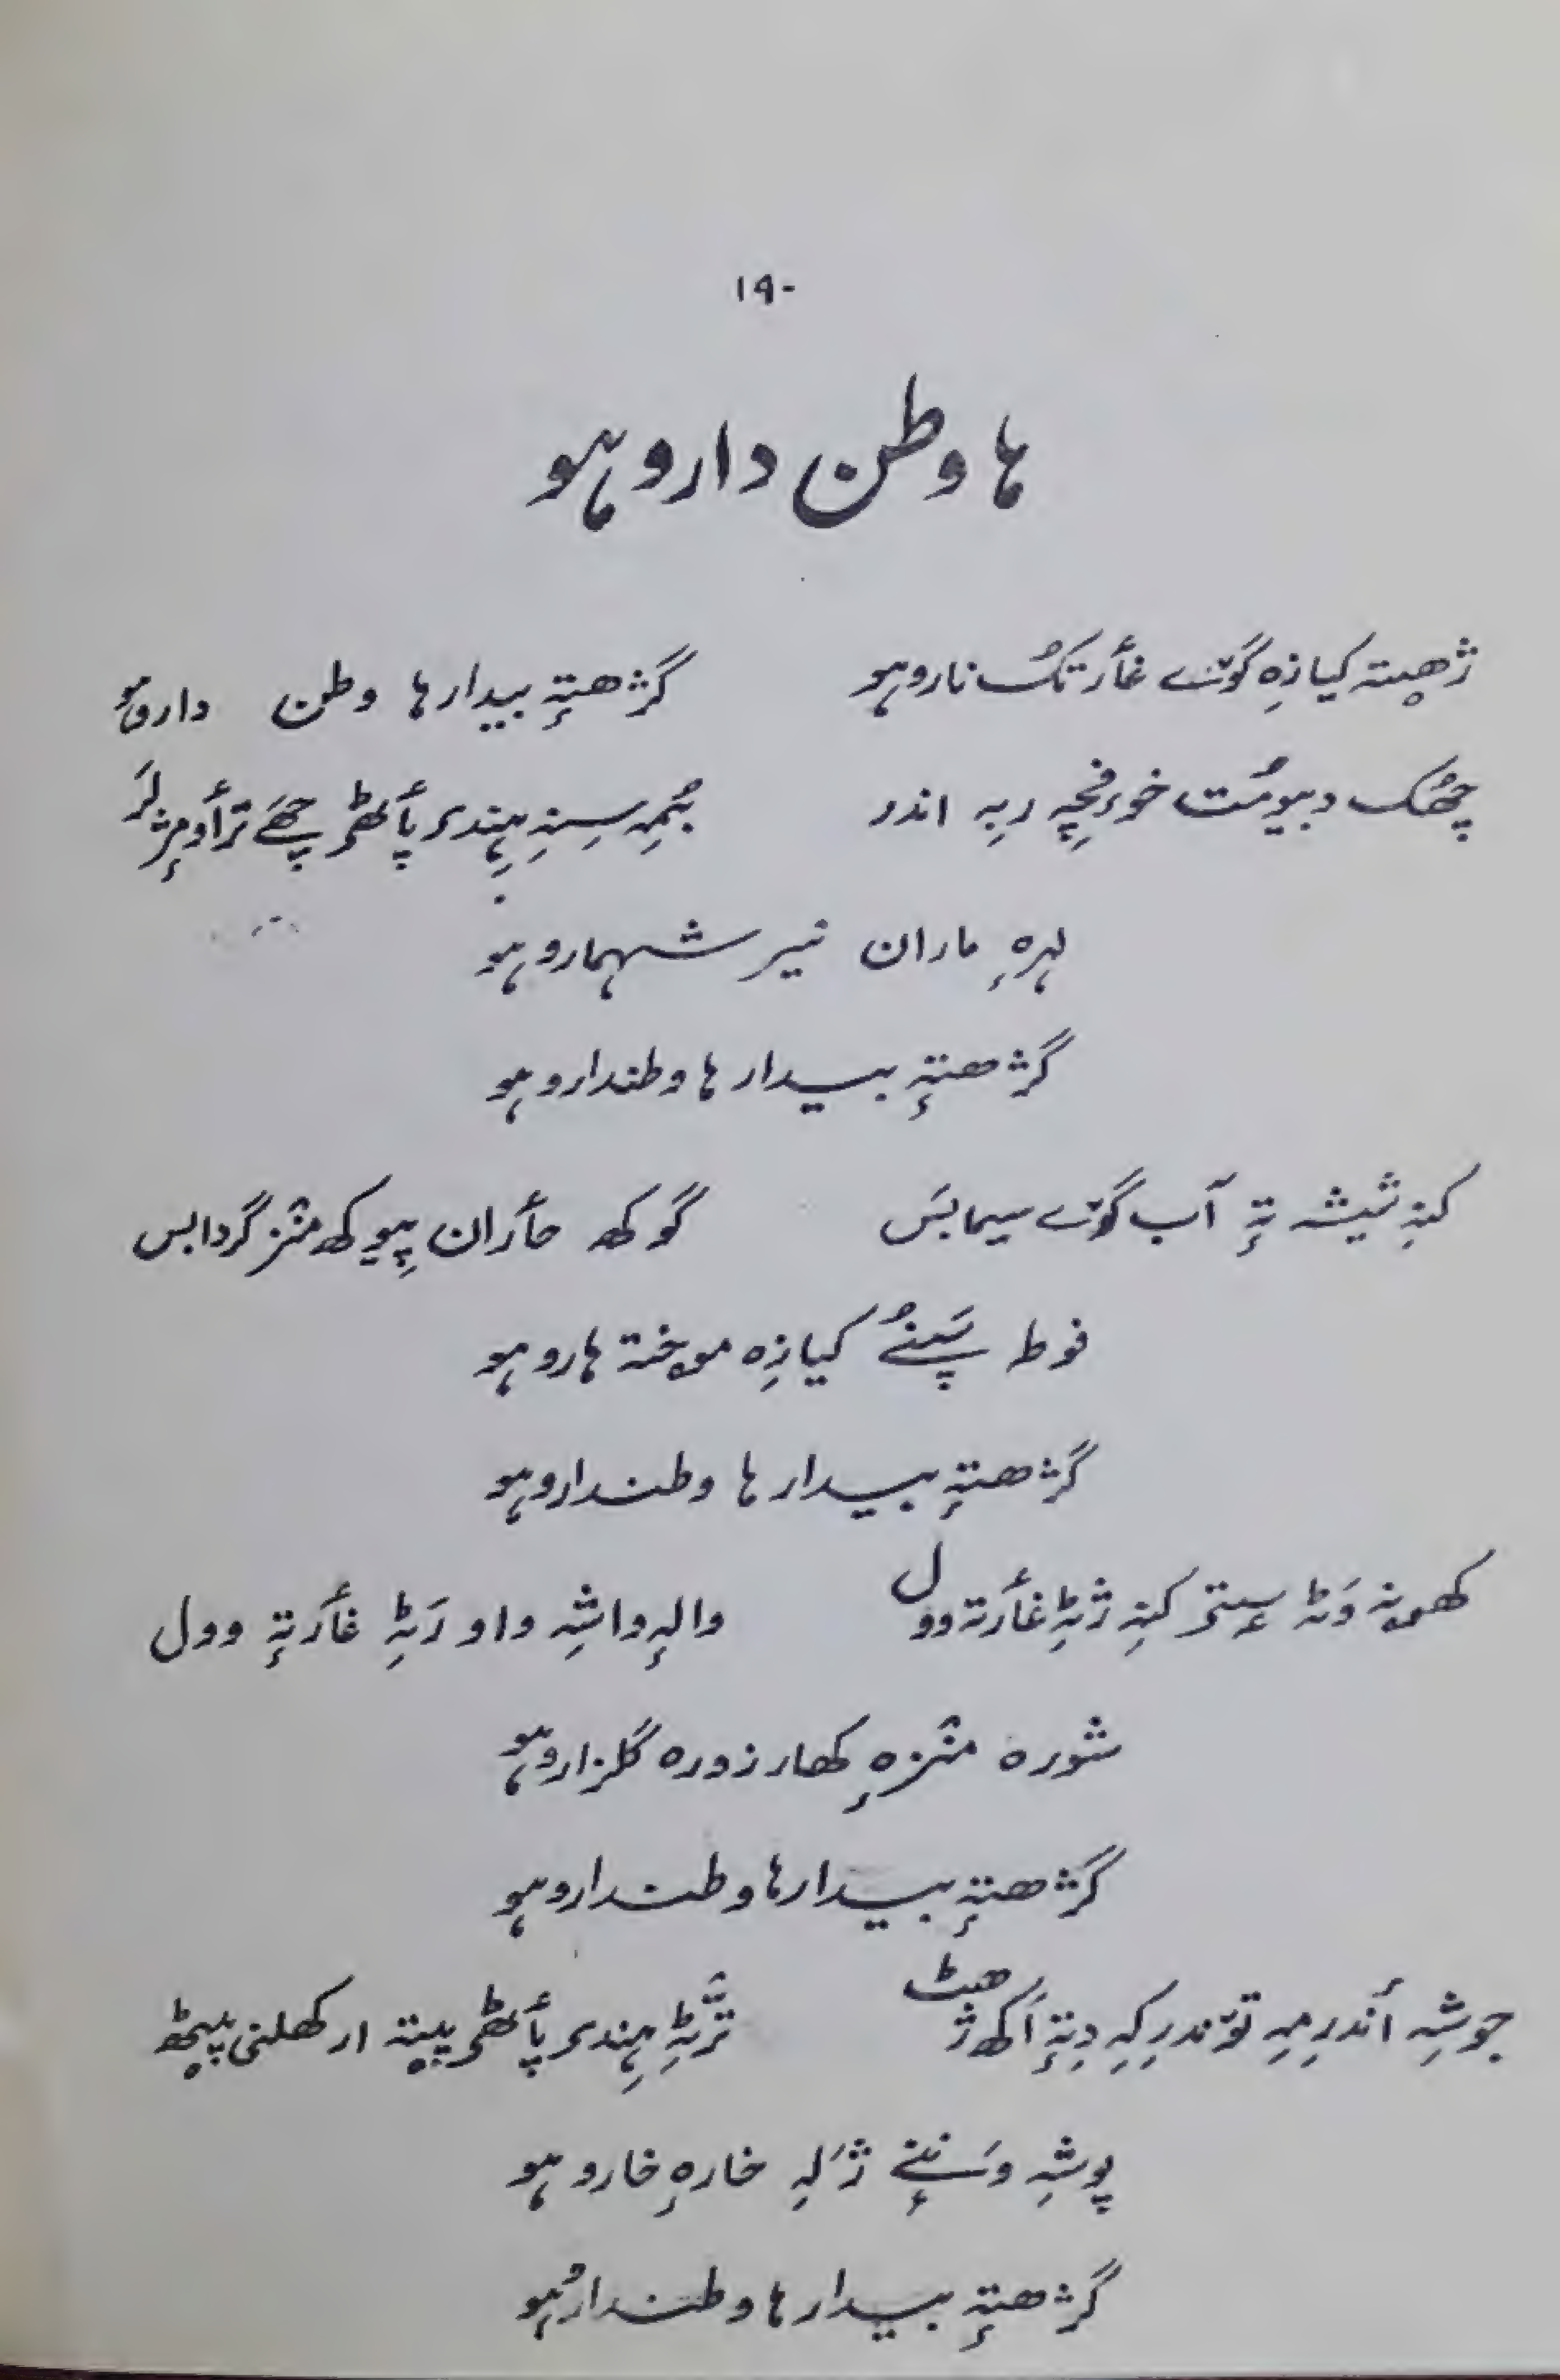 ۱۹۰
ہا وطن دارو ہو
ژھیتہٕ کیازِہ گوٚے غأرتُک نارو ہو گژھتہٕ بیدار ہا وطن دارو ہو
چھُک دبیومُت خوٗفچہِ ربہِ اندر بُمہِ سِنہِ ہِندی پأٹھی چھَے ترأومٕژ لَر
لہرہِ ماران نیر شہمارو ہو
گژھتہٕ بیدار ہا وطندارو ہو
کنہِ شیشہ تہٕ آب گوٚے سیمابَس گوکھ حأران پیوکھ منٛز گردابس
فوط پَننُے کیازِہ موختہ ہارو ہو
گژھتہٕ بیدار ہا وطندارو ہو
وَٹہ سٟتی کنہِ ژٹہِ غأرتہ وول والہٕ واشہِ واو رَٹہِ غأرتہٕ وول
شورہ منٛزہٕ کھار زورہ گلزارو ہو
گژھتہٕ بیدار ہا وطندارو ہو
جوشہِ أندرِمہِ توٚندرِکہِ دِتہٕ اَکھ ژھٹ ترٛٹہِ ہِندی پأٹھی پیتہٕ ارکھلنی پیٹھ
پوشہِ وَننٕے ژَلہِ خارہٕ خارو ہو
گژھتہٕ بیدار ہا وطندارو ہو